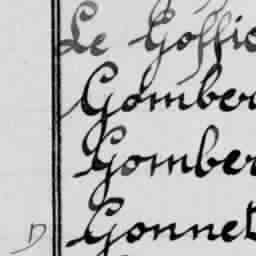 Le Goffic
Gomber
Gomber
D Gonnet